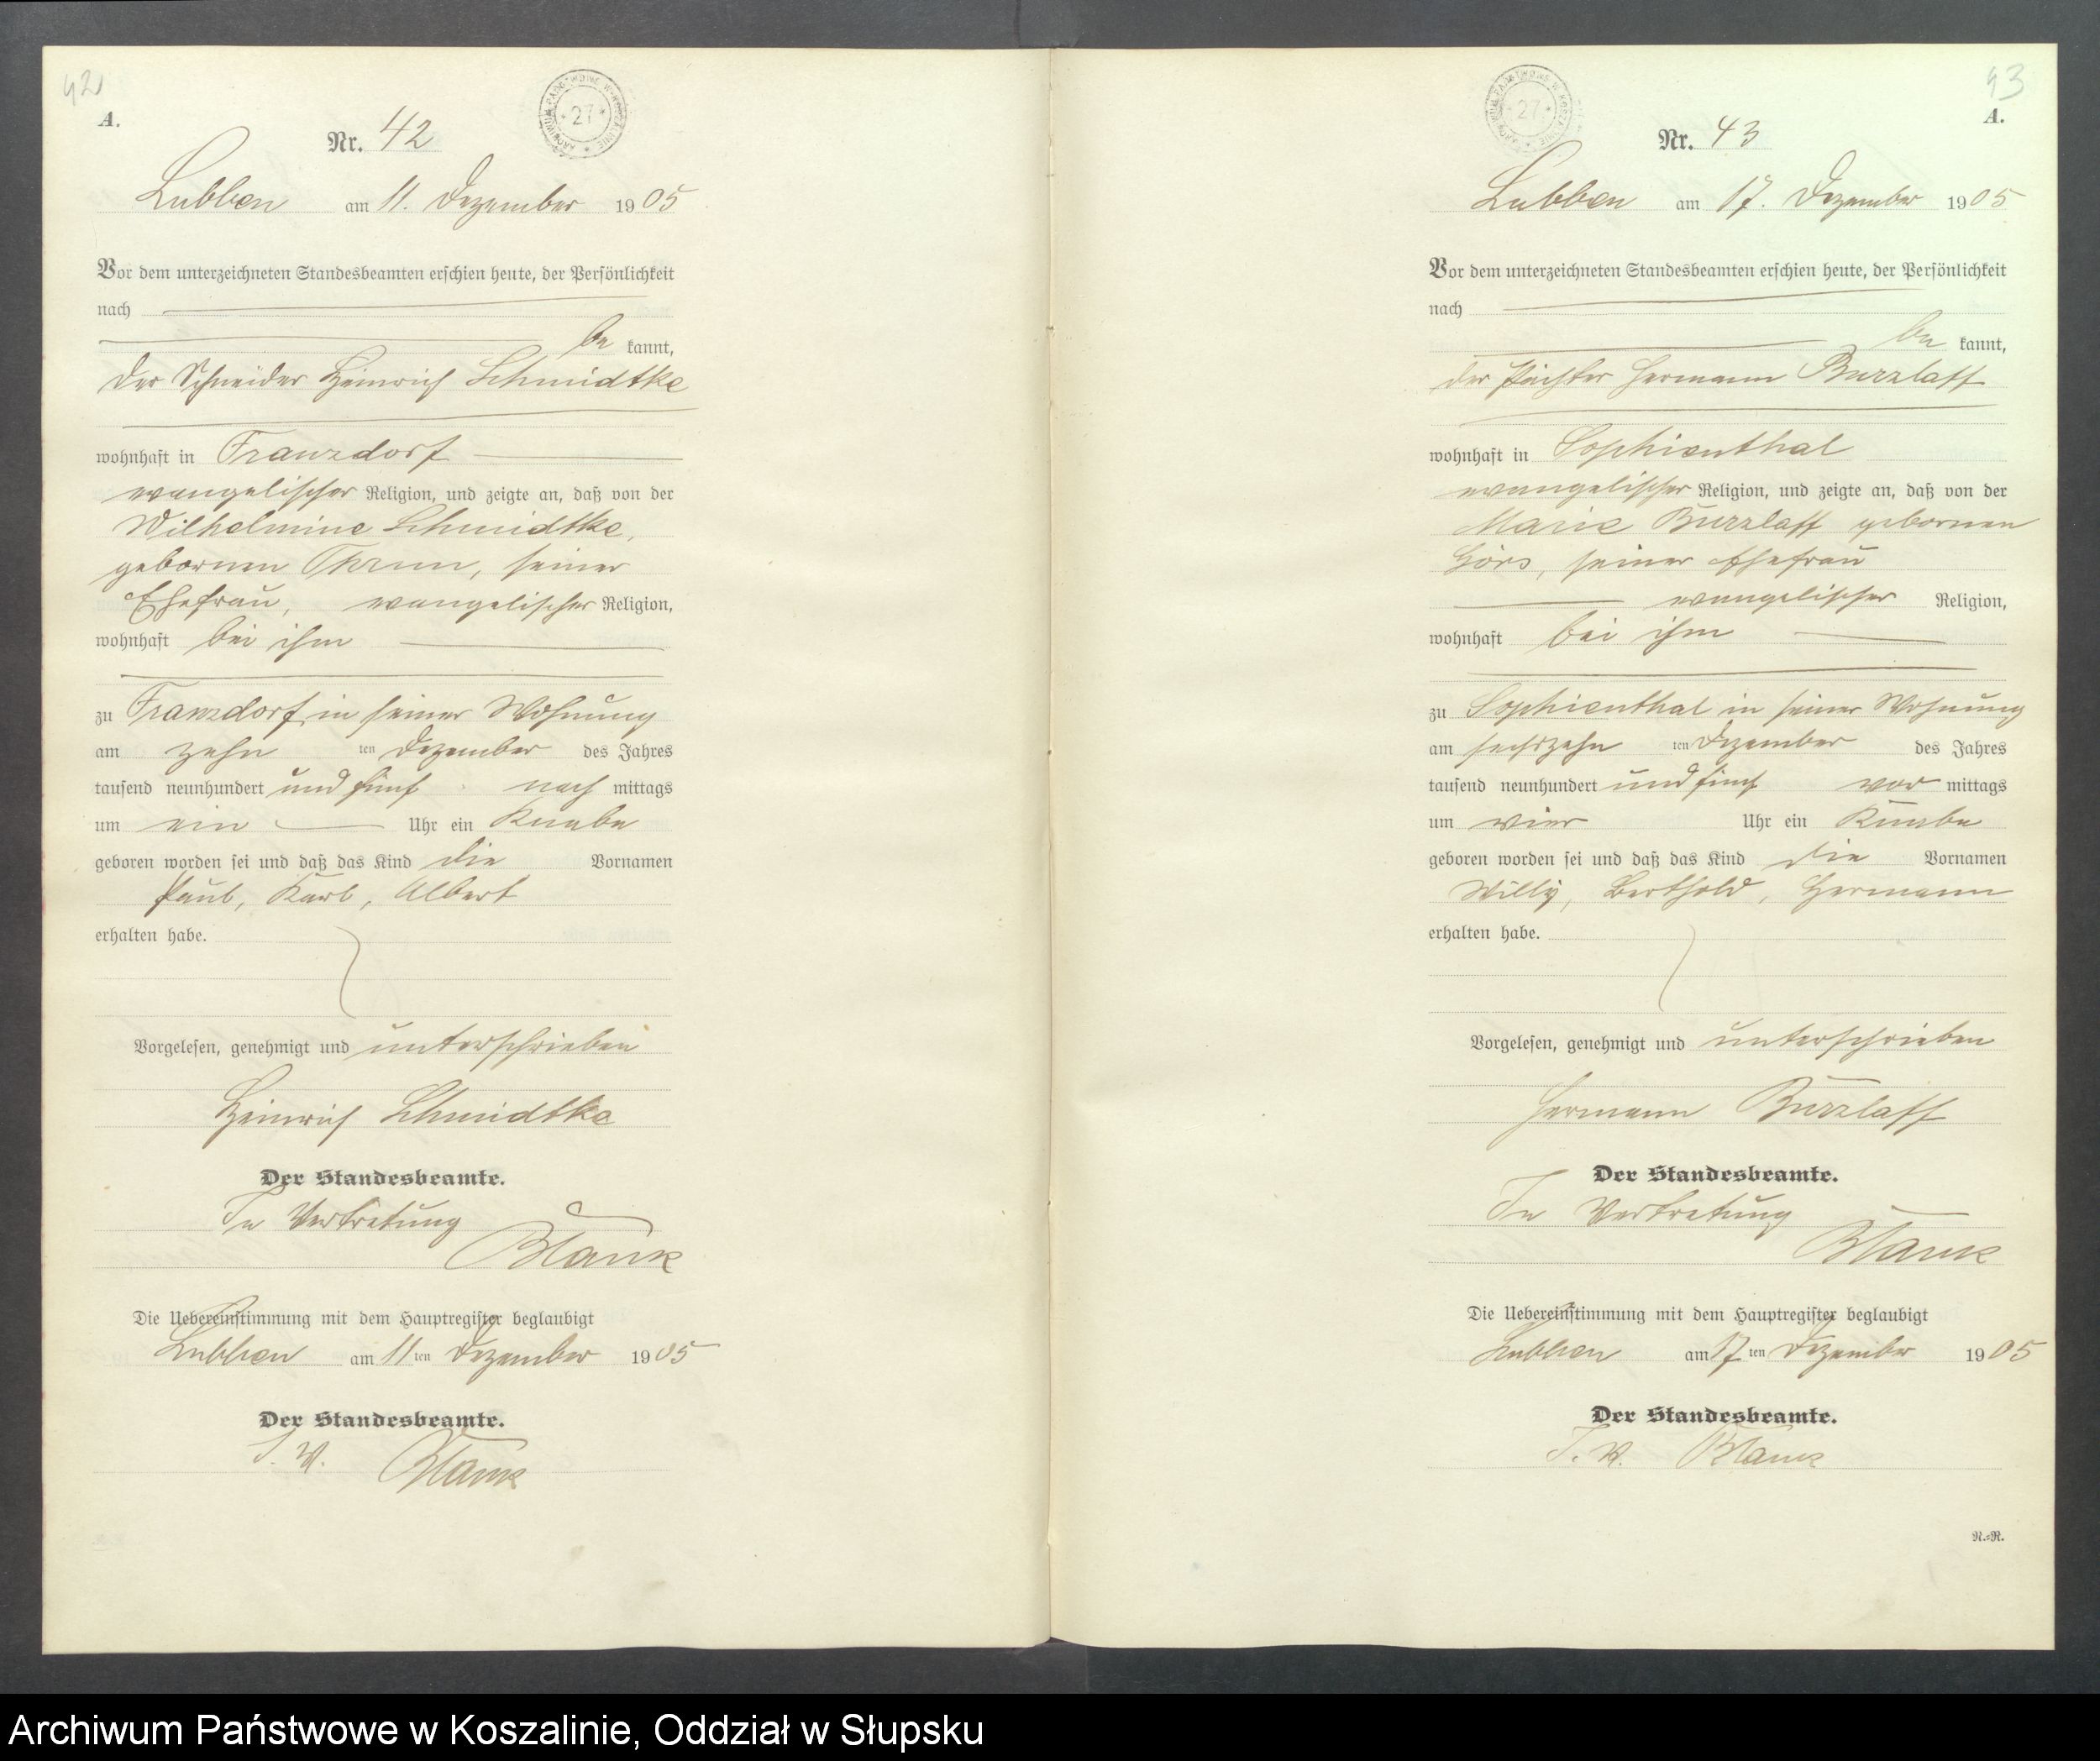 42
A.
ARCHIWUM PAŃSTWOWE W KOSZALINIE * 27 *
Nr. 42
Lubben am 11. Dezember 1905
Vor dem unterzeichneten Standesbeamten erschien heute, der Persönlichkeit
nach
be kannt,
der Schneider Heinrich Schmidtke
wohnhaft in Franzdorf
evangelischer Religion, und zeigte an, daß von der
Wilhelmine Schmidtke,
gebornen Thrun, seiner
Ehefrau, evangelischer Religion,
wohnhaft bei ihm
zu Franzdorf, in seiner Wohnung
am zehn ten Dezember des Jahres
tausend neunhundert und fünf nach mittags
um ein Uhr ein Knabe
geboren worden sei und daß das Kind die Vornamen
Paul, Karl, Albert
erhalten habe.
Vorgelesen, genehmigt und unterschrieben
Heinrich Schmidtke
Der Standesbeamte.
In Vertretung
Blank
Die Uebereinstimmung mit dem Hauptregister beglaubigt
Lubben am 11 ten Dezember 1905
Der Standesbeamte.
I. V. Blank
43
A.
ARCHIWUM PAŃSTWOWE W KOSZALINIE * 27 *
Nr. 43
Lubben am 17. Dezember 1905
Vor dem unterzeichneten Standesbeamten erschien heute, der Persönlichkeit
nach
be kannt,
der Pächter Hermann Burzlaff
wohnhaft in Sophienthal
evangelischer Religion, und zeigte an, daß von der
Marie Burzlaff gebornen
Görs, seiner Ehefrau
evangelischer Religion,
wohnhaft bei ihm
zu Sophienthal in seiner Wohnung
am sechszehn ten Dezember des Jahres
tausend neunhundert und fünf vor mittags
um vier Uhr ein Knabe
geboren worden sei und daß das Kind die Vornamen
Willy, Berthold, Hermann
erhalten habe.
Vorgelesen, genehmigt und unterschrieben
Hermann Burzlaff
Der Standesbeamte.
In Vertretung
Blank
Die Uebereinstimmung mit dem Hauptregister beglaubigt
Lubben am 17 ten Dezember 1905
Der Standesbeamte.
I. V. Blank
N.-R.
Archiwum Państwowe w Koszalinie, Oddział w Słupsku